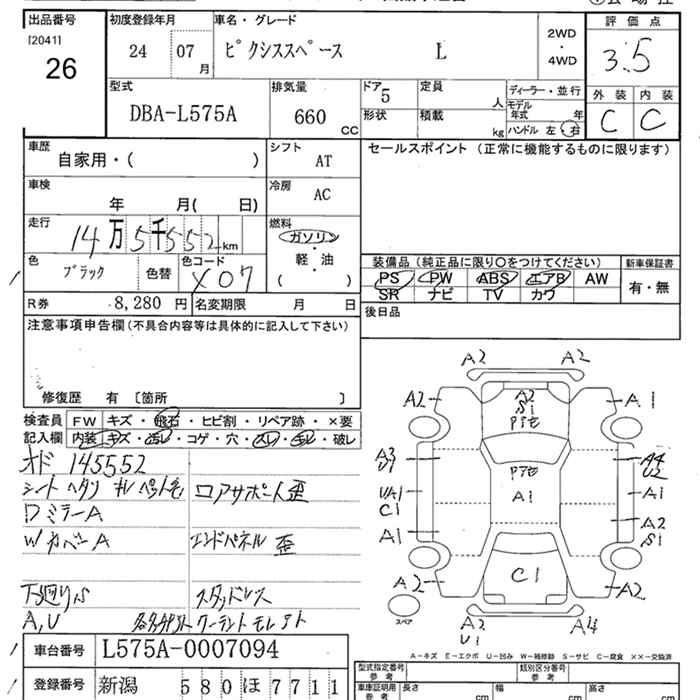 出品番号 初度登録年月 車名・グレード 評価点
[2041] 26 24 07月 ピクシススペース L 2WD・4WD 3.5
型式 DBA-L575A 排気量 660 CC ドア 5 定員 人 ディーラー・並行 外装 内装
形状 積載 kg モデル年式 年 C C
ハンドル 左・右
車歴 自家用・( ) シフト AT セールスポイント (正常に機能するものに限ります)
車検 年 月( 日) 冷房 AC
走行 14万5千552km 燃料 ガソリン
軽・油
( )
色 ブラック 色替 色コード X07 装備品(純正品に限り○をつけてください) 新車保証書
PS PW ABS エアB AW 有・無
SR ナビ TV カワ
R券 8,280円 名変期限 月 日 後日品
注意事項申告欄(不具合内容等は具体的に記入して下さい)
修復歴 有 〔箇所 〕
検査員記入欄 FW キズ・飛石・ヒビ割・リペア跡・×要
内装 キズ・汚レ・コゲ・穴・スレ・毛レ・破レ
オド 145552
シートヘタリ キレ ロアサポート歪
ロミラーA
Wカバー A エンドパネル 歪
下廻りS スタッドレス
A,U クーラントモレアト
A2 A2
A2 A2 S1 A1
A3 U1 A4 U2
UA1 C1 A1 A1
A1 A2 S1
A2 C1 A2
スペア A2 U1 A4
A-キズ E-エクボ U-凹み W-補修跡 S-サビ C-腐食 ××-交換済
車台番号 L575A-0007094 型式指定番号 参考 類別区分番号 参考
登録番号 新潟 580ほ7711 車庫証明用 参考 長さ cm 幅 cm 高さ cm